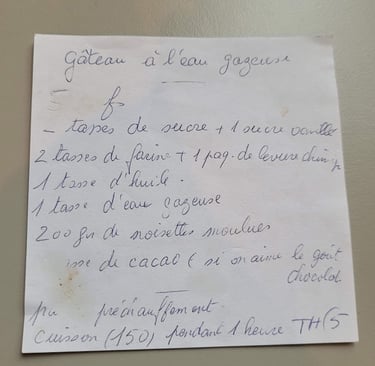 Gâteau à l'eau gazeuse
5 fs
- tasses de sucre + 1 sucre vanille
2 tasses de farine + 1 paq. de levure chim
1 tasse d'huile.
1 tasse d'eau gazeuse
200 gr de noisettes moulues
sse de cacao ( si on aime le goût
chocolat
préchauffement
Cuisson (150) pendant 1 heure TH(5